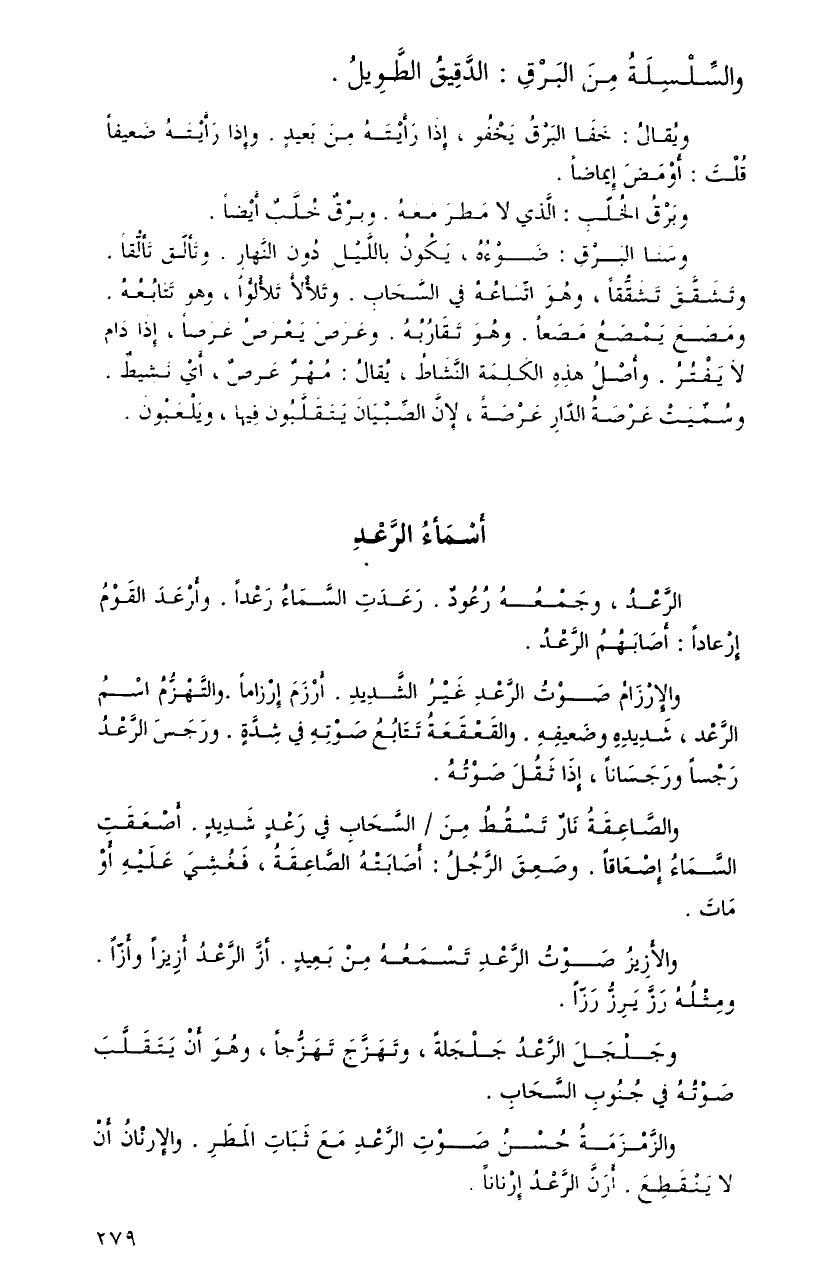 والسِّلْسِلَةُ مِنَ البَرْقِ : الدَّقِيقُ الطَّوِيلُ .
ويُقالُ : خَفَا البَرْقُ يَخْفُو ، إذَا رَأَيْتَهُ مِنَ بَعيدٍ . وإذا رَأَيْتَهُ ضَعيفاً
قُلْتَ : أَوْمَضَ إيماضاً .
وبَرْقُ الخُلَّبِ : الَّذي لا مَطَرَ معهُ . وبرقٌ خُلَّبٌ أيْضاً .
وسَنا البَرْقِ : ضَوْءُهُ ، يَكُونُ باللَّيْلِ دُون النَّهارِ . وتَألَّق تَألُّقاً .
وتَشَقَّقَ تَشَقُّقاً ، وهُوَ اتِّساعُهُ في السَّحَابِ . وتَلألأَ تَلألُؤاً ، وهو تَتابُعُهُ .
ومَصَعَ يَمْصَعُ مَصَعاً . وهُوَ تَقَارُبُهُ . وعَرَصَ يَعْرِصُ عَرصاً ، إذَا دَام
لاَ يَفْتُرُ . وأَصْلُ هذِهِ الكَلِمَةِ النَّشاطُ ، يُقالُ : مُهْرٌ عَرِصٌ ، أيْ نَشيطٌ .
وسُمِّيَتْ عَرْصَةُ الدَّارِ عَرْصَةً ، لِإنَّ الصِّبْيَانَ يَتَقَلَّبُون فِيها ، ويَلْعَبُونَ .
أَسْمَأءُ الرَّعْدِ
الرَّعْدُ ، وجَمْعُهُ رُعُودٌ . رَعَدَتِ السَّماءُ رَعْداً . وأَرْعَدَ القَوْمُ
إرْعاداً : أَصَابَهُمُ الرَّعْدُ .
والإرْزَامُ صَوْتُ الرَّعْدِ غَيْرُ الشَّدِيدِ . أَرْزَمَ إرْزاماً .والتَّهَزُّمُ اسْمُ
الرَّعْد ، شَدِيدِهِ وضَعيفِهِ . والقَعْقَعَةُ تَتابُعُ صَوْتِهِ في شِدَّةٍ . ورَجَسَ الرَّعْدُ
رَجْساً ورَجَسَاناً ، إذَا ثَقُلَ صَوْتُهُ .
والصَّاعِقَةُ نَارٌ تَسْقُطُ مِنَ / السَّحَابِ في رَعْدٍ شَدِيدٍ . أَصْعَقَتِ
السَّماءُ إصْعَاقاً . وصَعِقَ الرَّجُلُ : أَصَابَتْهُ الصَّاعِقَةُ ، فَغُشِيَ عَلَيْهِ أوْ
مَاتَ .
والأَزِيزُ صَوْتُ الرَّعْدِ تَسْمَعُهُ مِنْ بَعِيدٍ . أَزَّ الرَّعْدُ أَزِيزاً وأَزّاً .
ومِثْلُهُ رَزَّ يَرِزُّ رَزّاً .
وجَلْجَلَ الرَّعْدُ جَلْجَلةً ، وتَهَزَّجَ تَهَزُّجاً ، وهُوَ أنْ يَتَقَلَّبَ
صَوْتُهُ في جُنُوبِ السَّحَابِ .
والزَّمْزَمَةُ حُسْنُ صَوْتِ الرَّعْدِ مَعَ ثَبَاتِ المَطَرِ . والإرنْانُ أنْ
لا يَنْقَطِعَ . أَرَنَّ الرَّعْدُ إرْناناً .
٢٧٩